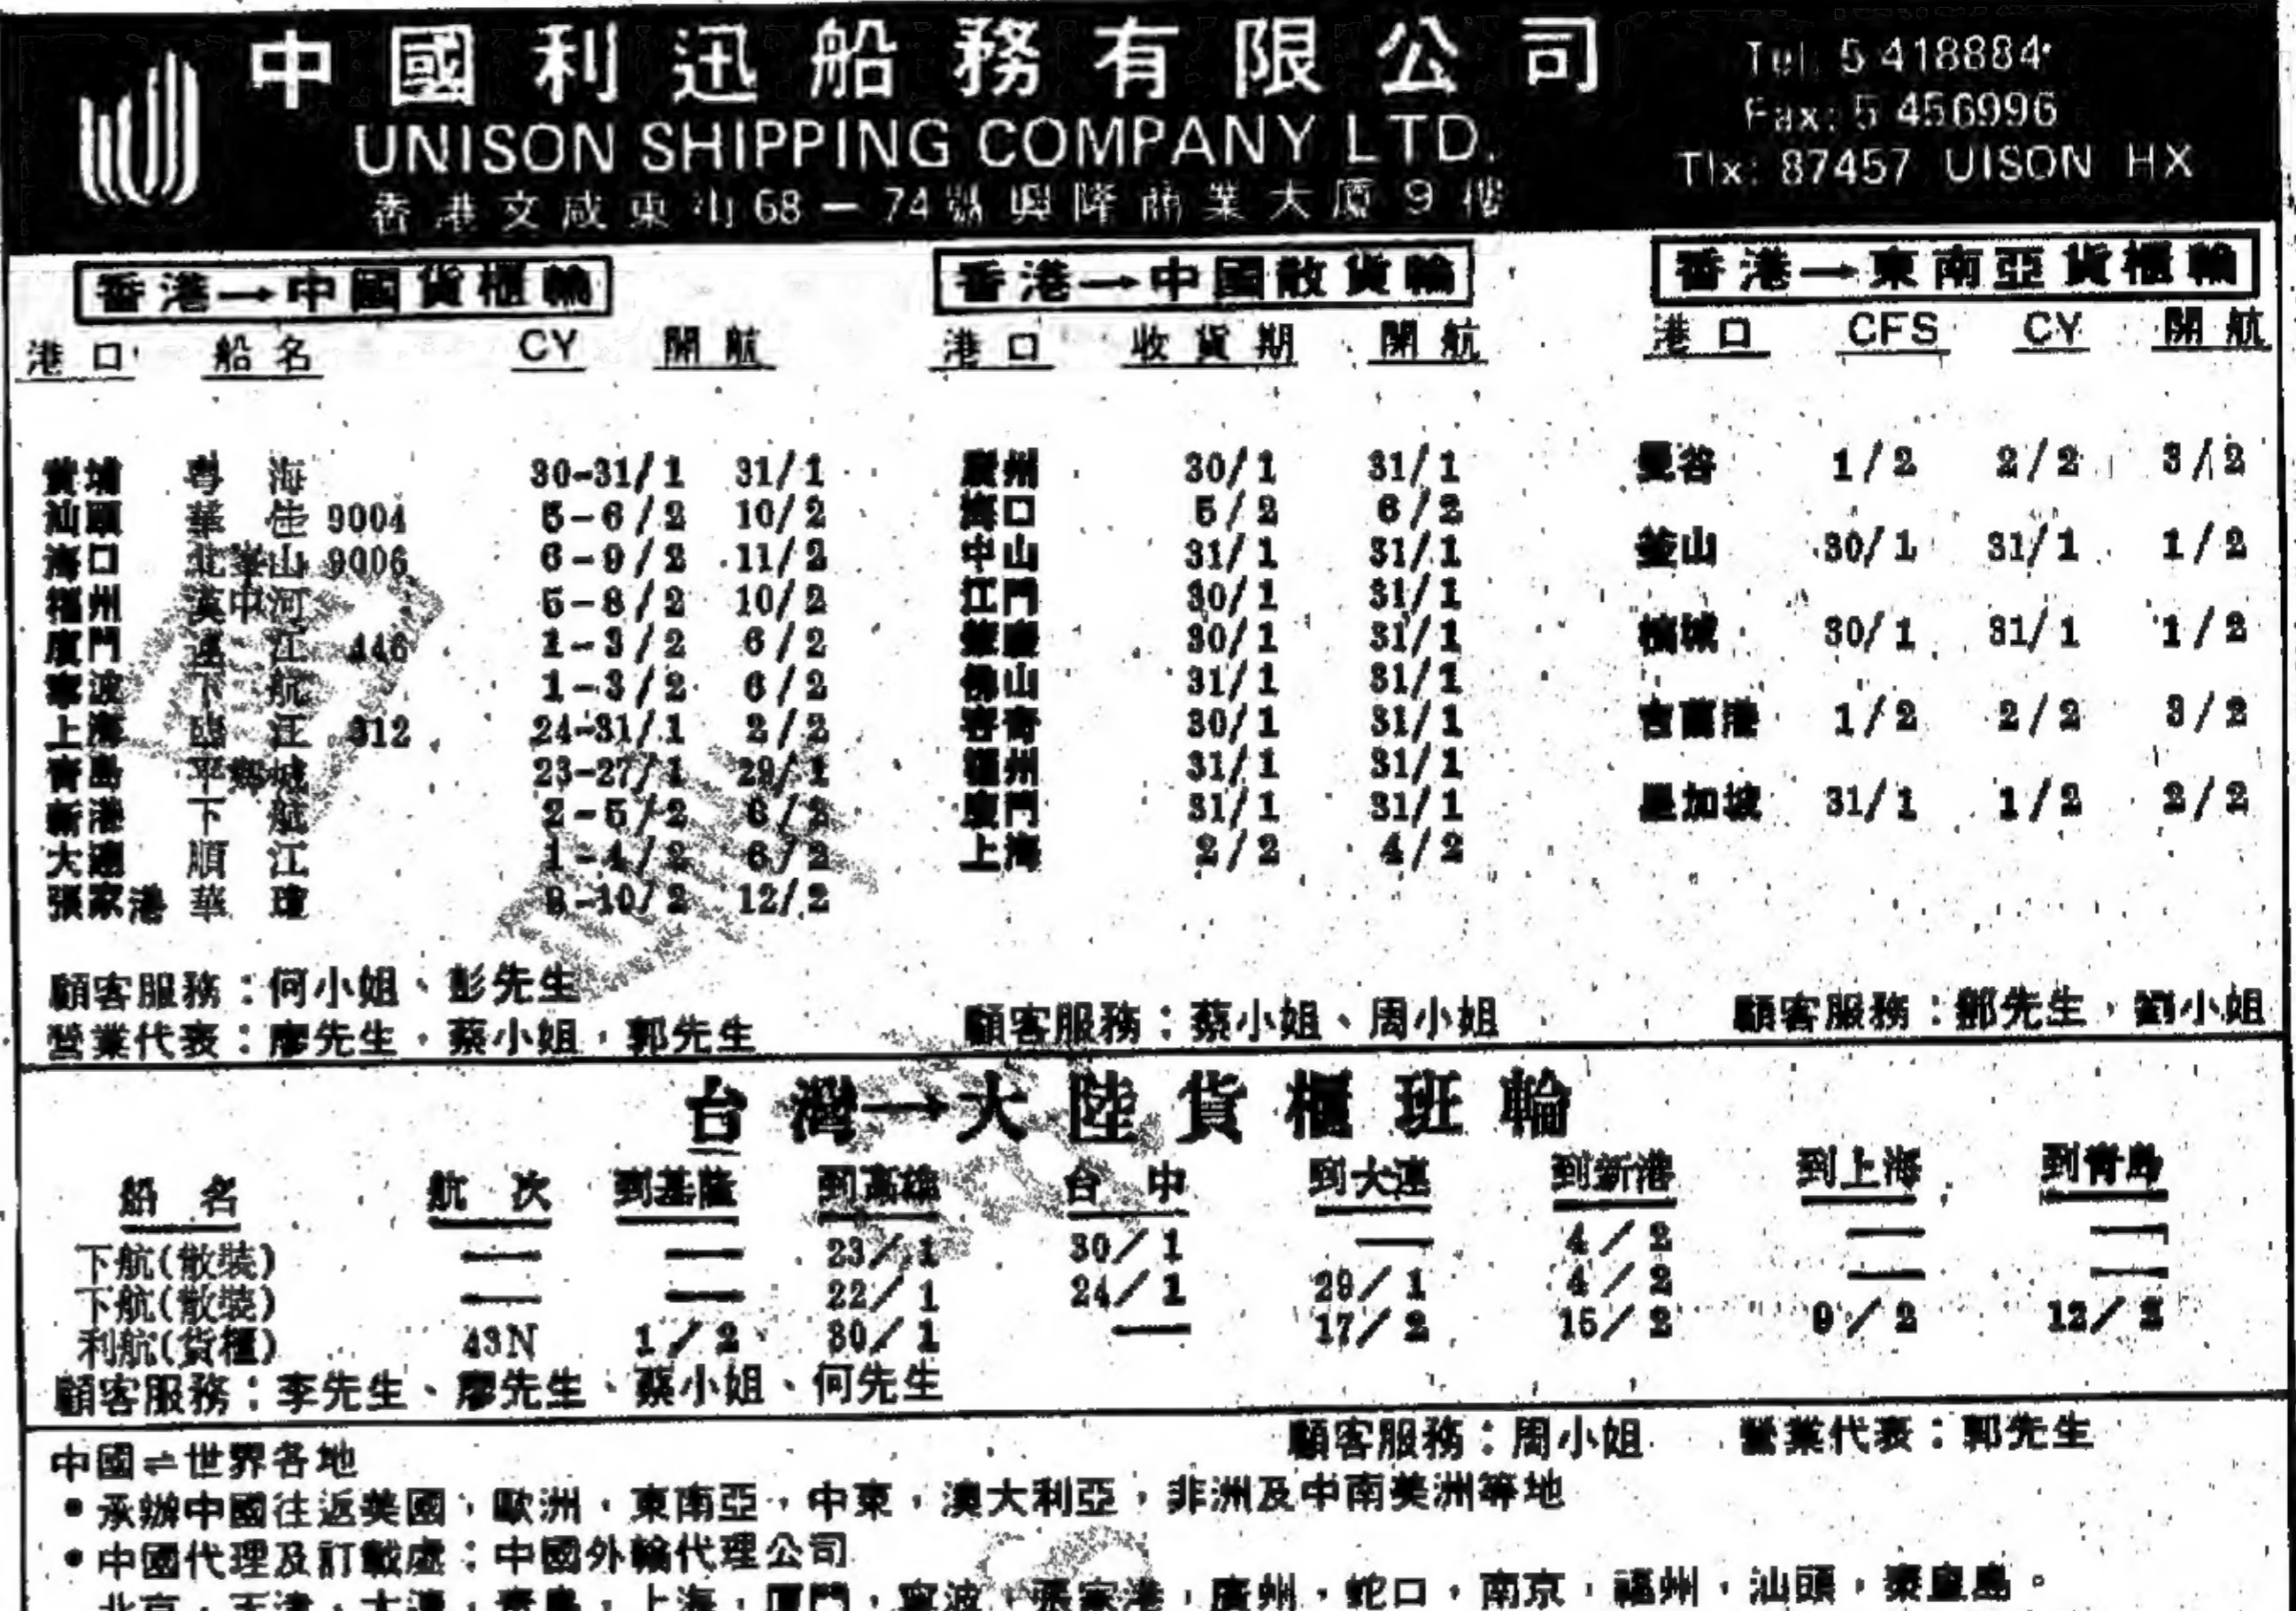 中國利迅船務有限公司
UNISON SHIPPING COMPANY LTD.
香港文咸東街68－74號興隆商業大廈9樓
Tel: 5 418884
Fax: 5 456996
Tlx: 87457 UISON HX
香港→中國貨櫃輪
港口 船名 CY 開航
黃埔 粵海 30-31/1 31/1
汕頭 華佳 9004 5-6/2 10/2
海口 北華山 9006 6-9/2 11/2
福州 漢中河 5-8/2 10/2
廈門 連江 446 1-3/2 6/2
寧波 下航 1-3/2 6/2
上海 臨江 312 24-31/1 2/2
青島 平鄉城 23-27/1 29/1
新港 下航 2-5/2 6/2
大連 順江 1-4/2 6/2
張家港 華瓊 9-10/2 12/2
顧客服務：何小姐、彭先生
營業代表：廖先生，蔡小姐，郭先生
香港→中國散貨輪
港口 收貨期 開航
廣州 30/1 31/1
海口 5/2 6/2
中山 31/1 31/1
江門 30/1 31/1
肇慶 30/1 31/1
佛山 31/1 31/1
容奇 30/1 31/1
福州 31/1 31/1
廈門 31/1 31/1
上海 2/2 4/2
顧客服務：蔡小姐、周小姐
香港→東南亞貨櫃輪
港口 CFS CY 開航
曼谷 1/2 2/2 3/2
釜山 30/1 31/1 1/2
檳城 30/1 31/1 1/2
吉蘭港 1/2 2/2 3/2
星加坡 31/1 1/2 2/2
顧客服務：鄧先生，劉小姐
台灣→大陸貨櫃班輪
船名 航次 到基隆 到高雄 台中 到大連 到新港 到上海 到青島
下航(散裝) — — 23/1 30/1 — 4/2 — —
下航(散裝) — — 22/1 24/1 29/1 4/2 — —
利航(貨櫃) 43N 1/2 30/1 — 17/2 15/2 9/2 12/2
顧客服務：李先生、廖先生、蔡小姐、何先生
顧客服務：周小姐 營業代表：郭先生
中國⇌世界各地
•承辦中國往返美國，歐洲，東南亞，中東，澳大利亞，非洲及中南美洲等地
•中國代理及訂載處：中國外輪代理公司
北京，天津，大連，青島，上海，廈門，寧波，張家港，廣州，蛇口，南京，福州，汕頭，秦皇島。